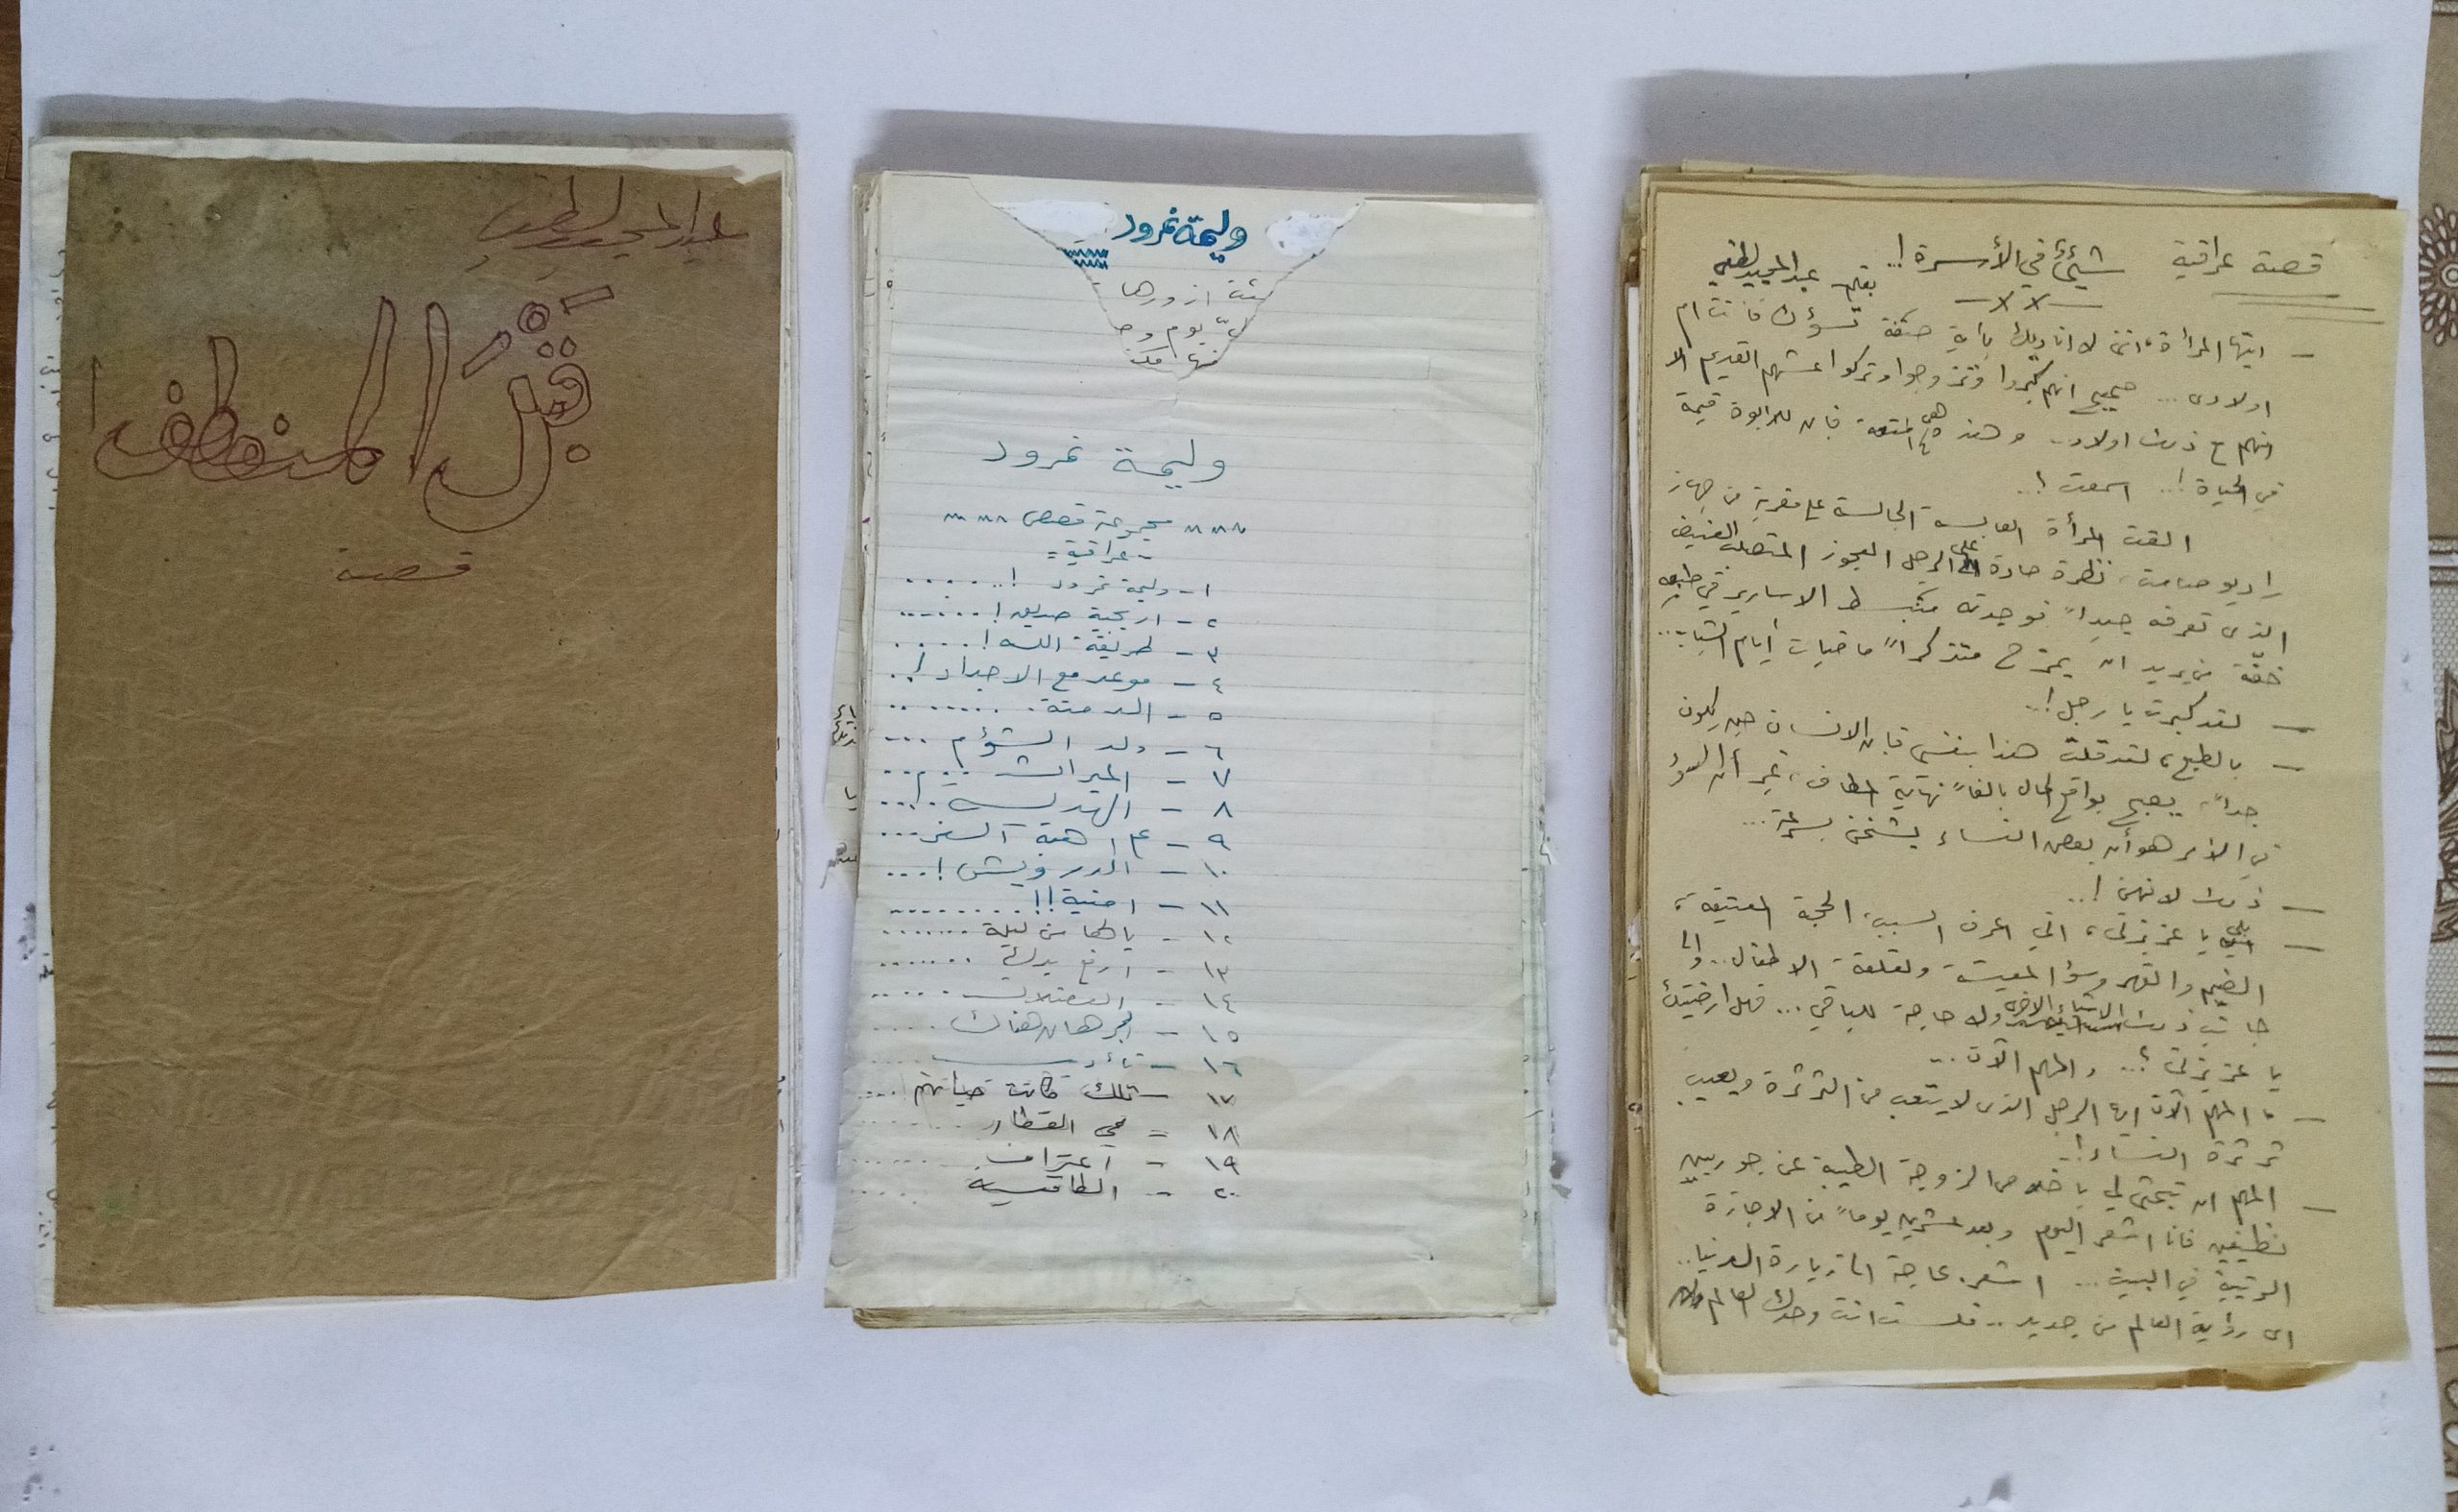 عبد المجيد لطفي
قبل المنطف
قصة
وليمة نمرود
ئت ازورها
كلّ يوم وجـ
وليمة نمرود
مجموعة قصص
عراقية
١- وليمة نمرود !......
٢- اريحية صديق !......
٣- طريقة الله !.....
٤- موعد مع الاجداد !..
٥- الدمتة ........
٦- ولد الشؤم ...
٧- الميراث .....
٨- الهديـة .....
٩- السفر...
١٠- الدرويش !....
١١- امنية !! ........
١٢- يالها من ليلة .......
١٣- ارفع يدك .......
١٤- العضلات ......
١٥- هناك ....
١٦- تأديب .....
١٧- تلك كانت حياتهم ....
١٨- في القطار ......
١٩- اعتراف ......
٢٠- الطاقية .....
قصة عراقية شيئ في الأسرة !.. بقلم عبد المجيد لطفي
- ايتها المرأة، انني لا اناديك بأية صفة فانت ام
اولادى ... صحيح انهم كبروا وتزوجوا وتركوا عشهم القديم الا
انهم مع ذلك اولاد .. وهذه هي المتعة فان للابوة قيمة
في الحياة !.. اسمعت ؟..
القت المرأة العابسة الجالسة على مقربة من جهاز
راديو صامت، نظرة حادة على الرجل العجوز المتصلب
الذى تعرفه جيداً فوجدته منبسط الاسارير في طبعه
خفة من يريد ان يمزح متذكراً ماضيات أيام الشباب..
- لقد كبرت يا رجل !..
- بالطبع، لقد قلت هذا بنفسي فان الانسان حين يكون
جداً، يصبح بواقع الحال بالغاً نهاية المطاف، غير أن السؤ
في الأمر هو أن بعض النساء يشخن بسرعة...
- ذلك لانهن !..
- بلى يا عزيزتى، اني اعرف السبب، الحجة العتيقة،
الضيم والقهر وسؤ المعيشة ولقلقة الاطفال .. والى
جانب ذلك الاشياء الاخرى ولا حاجة للباقي ... فهل ارضيتك
يا عزيزتى ؟.. والمهم الآن ..
- ما المهم الآن ايها الرجل الذى لا يتعب من الثرثرة ويعيب
ثرثرة النساء !..
- المهم ان تبحثي لي يا خلاص الزوجة الطيبة عن جوربين
نظيفين فانا اشعر اليوم وبعد عشرين يوماً من الاجازة
الرتيبة في البيت ... اشعر بحاجة الى زيارة الدنيا..
الى رؤية العالم من جديد .. فلست انت وحدك العالم